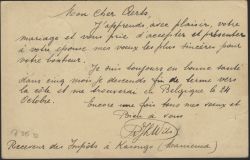 Mon Cher Aerts,
J'apprends, avec plaisir, votre
mariage et vous prie d'accepter et présenter
à votre épouse mes vœux les plus sincères pour
votre bonheur.
Je suis toujours en bonne santé
dans cinq mois je descends fin de terme vers
la côte et me trouverai en Belgique le 24
Octobre.
Encore une fois tous mes vœux et
Bien à vous
Receveur des Impôts à Kasongo (Maniema)